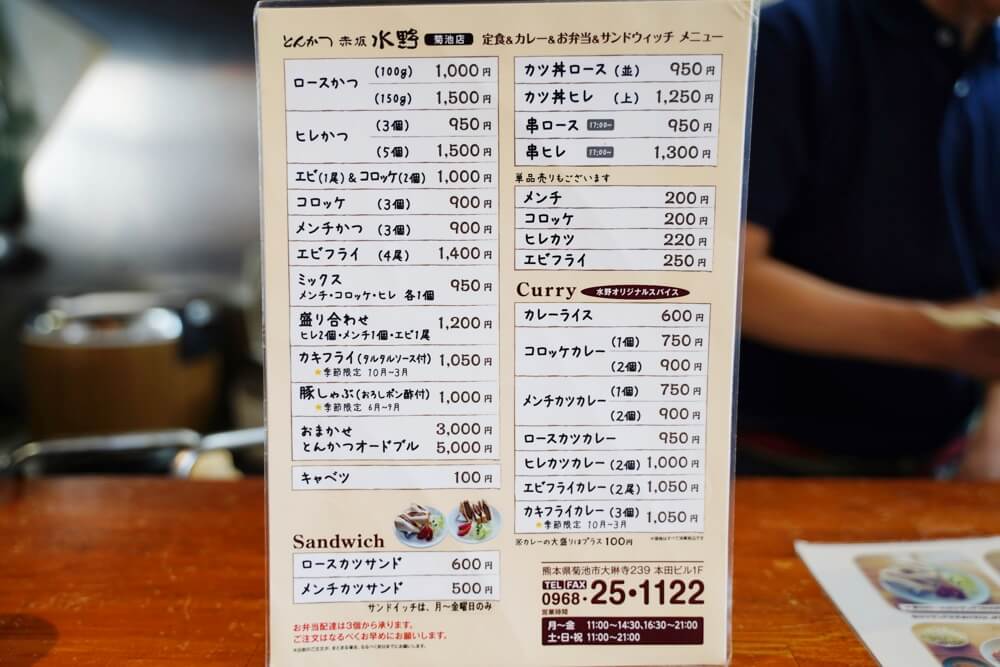 とんかつ 赤坂 水野 菊池店 定食&カレー&お弁当&サンドウィッチ メニュー
ロースかつ (100g) 1,000円
(150g) 1,500円
ヒレかつ (3個) 950円
(5個) 1,500円
エビ(1尾)&コロッケ(2個) 1,000円
コロッケ (3個) 900円
メンチかつ (3個) 900円
エビフライ (4尾) 1,400円
ミックス 950円
メンチ・コロッケ・ヒレ 各1個
盛り合わせ 1,200円
ヒレ2個・メンチ1個・エビ1尾
カキフライ(タルタルソース付) 1,050円
★季節限定 10月~3月
豚しゃぶ(おろしポン酢付) 1,000円
★季節限定 6月~9月
おまかせ 3,000円
とんかつオードブル 5,000円
キャベツ 100円
Sandwich
ロースカツサンド 600円
メンチカツサンド 500円
サンドイッチは、月~金曜日のみ
お弁当配達は3個から承ります。
ご注文はなるべくお早めにお願いします。
カツ丼ロース (並) 950円
カツ丼ヒレ (上) 1,250円
串ロース 17:00~ 950円
串ヒレ 17:00~ 1,300円
単品売りもございます
メンチ 200円
コロッケ 200円
ヒレカツ 220円
エビフライ 250円
Curry 水野オリジナルスパイス
カレーライス 600円
コロッケカレー (1個) 750円
(2個) 900円
メンチカツカレー (1個) 750円
(2個) 900円
ロースカツカレー 950円
ヒレカツカレー (2個) 1,000円
エビフライカレー (2尾) 1,050円
カキフライカレー (3個) 1,050円
★季節限定 10月~3月
※カレーの大盛りはプラス100円
※価格はすべて消費税込です
熊本県菊池市大琳寺239 本田ビル1F
TEL FAX
0968・25・1122
営業時間
月~金 11:00~14:30,16:30~21:00
土・日・祝 11:00~21:00